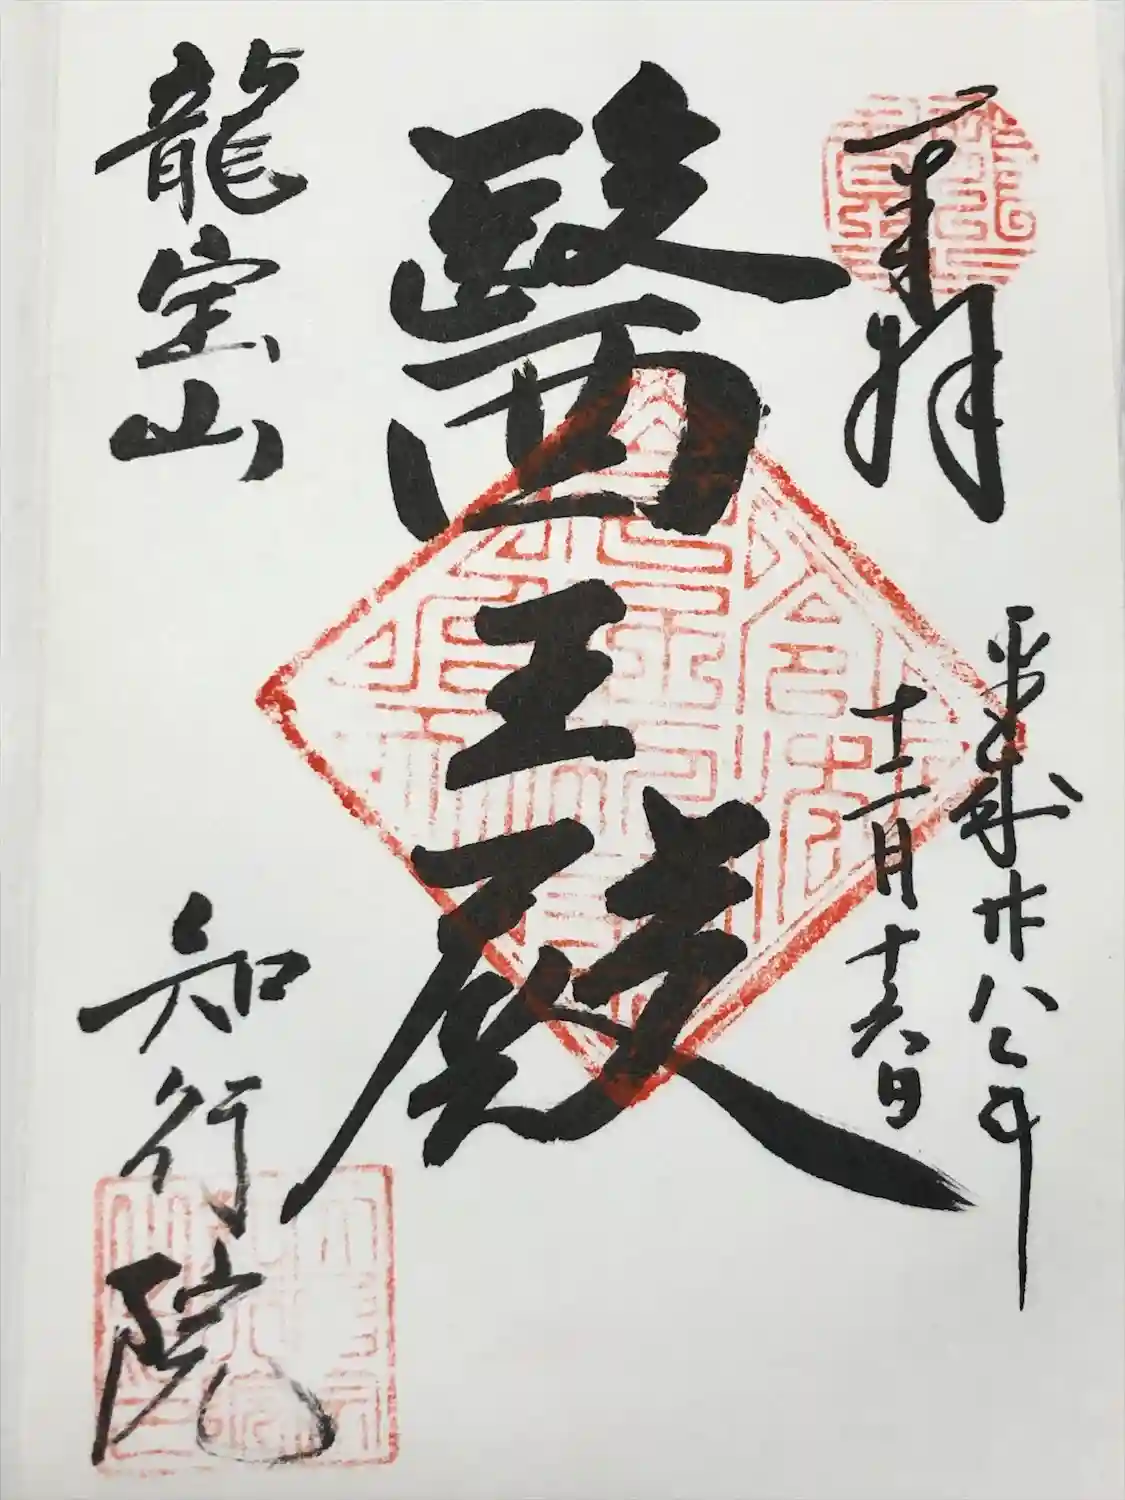 奉拝
平成廿八年
十二月十六日
醫王殿
龍宝山
知行院